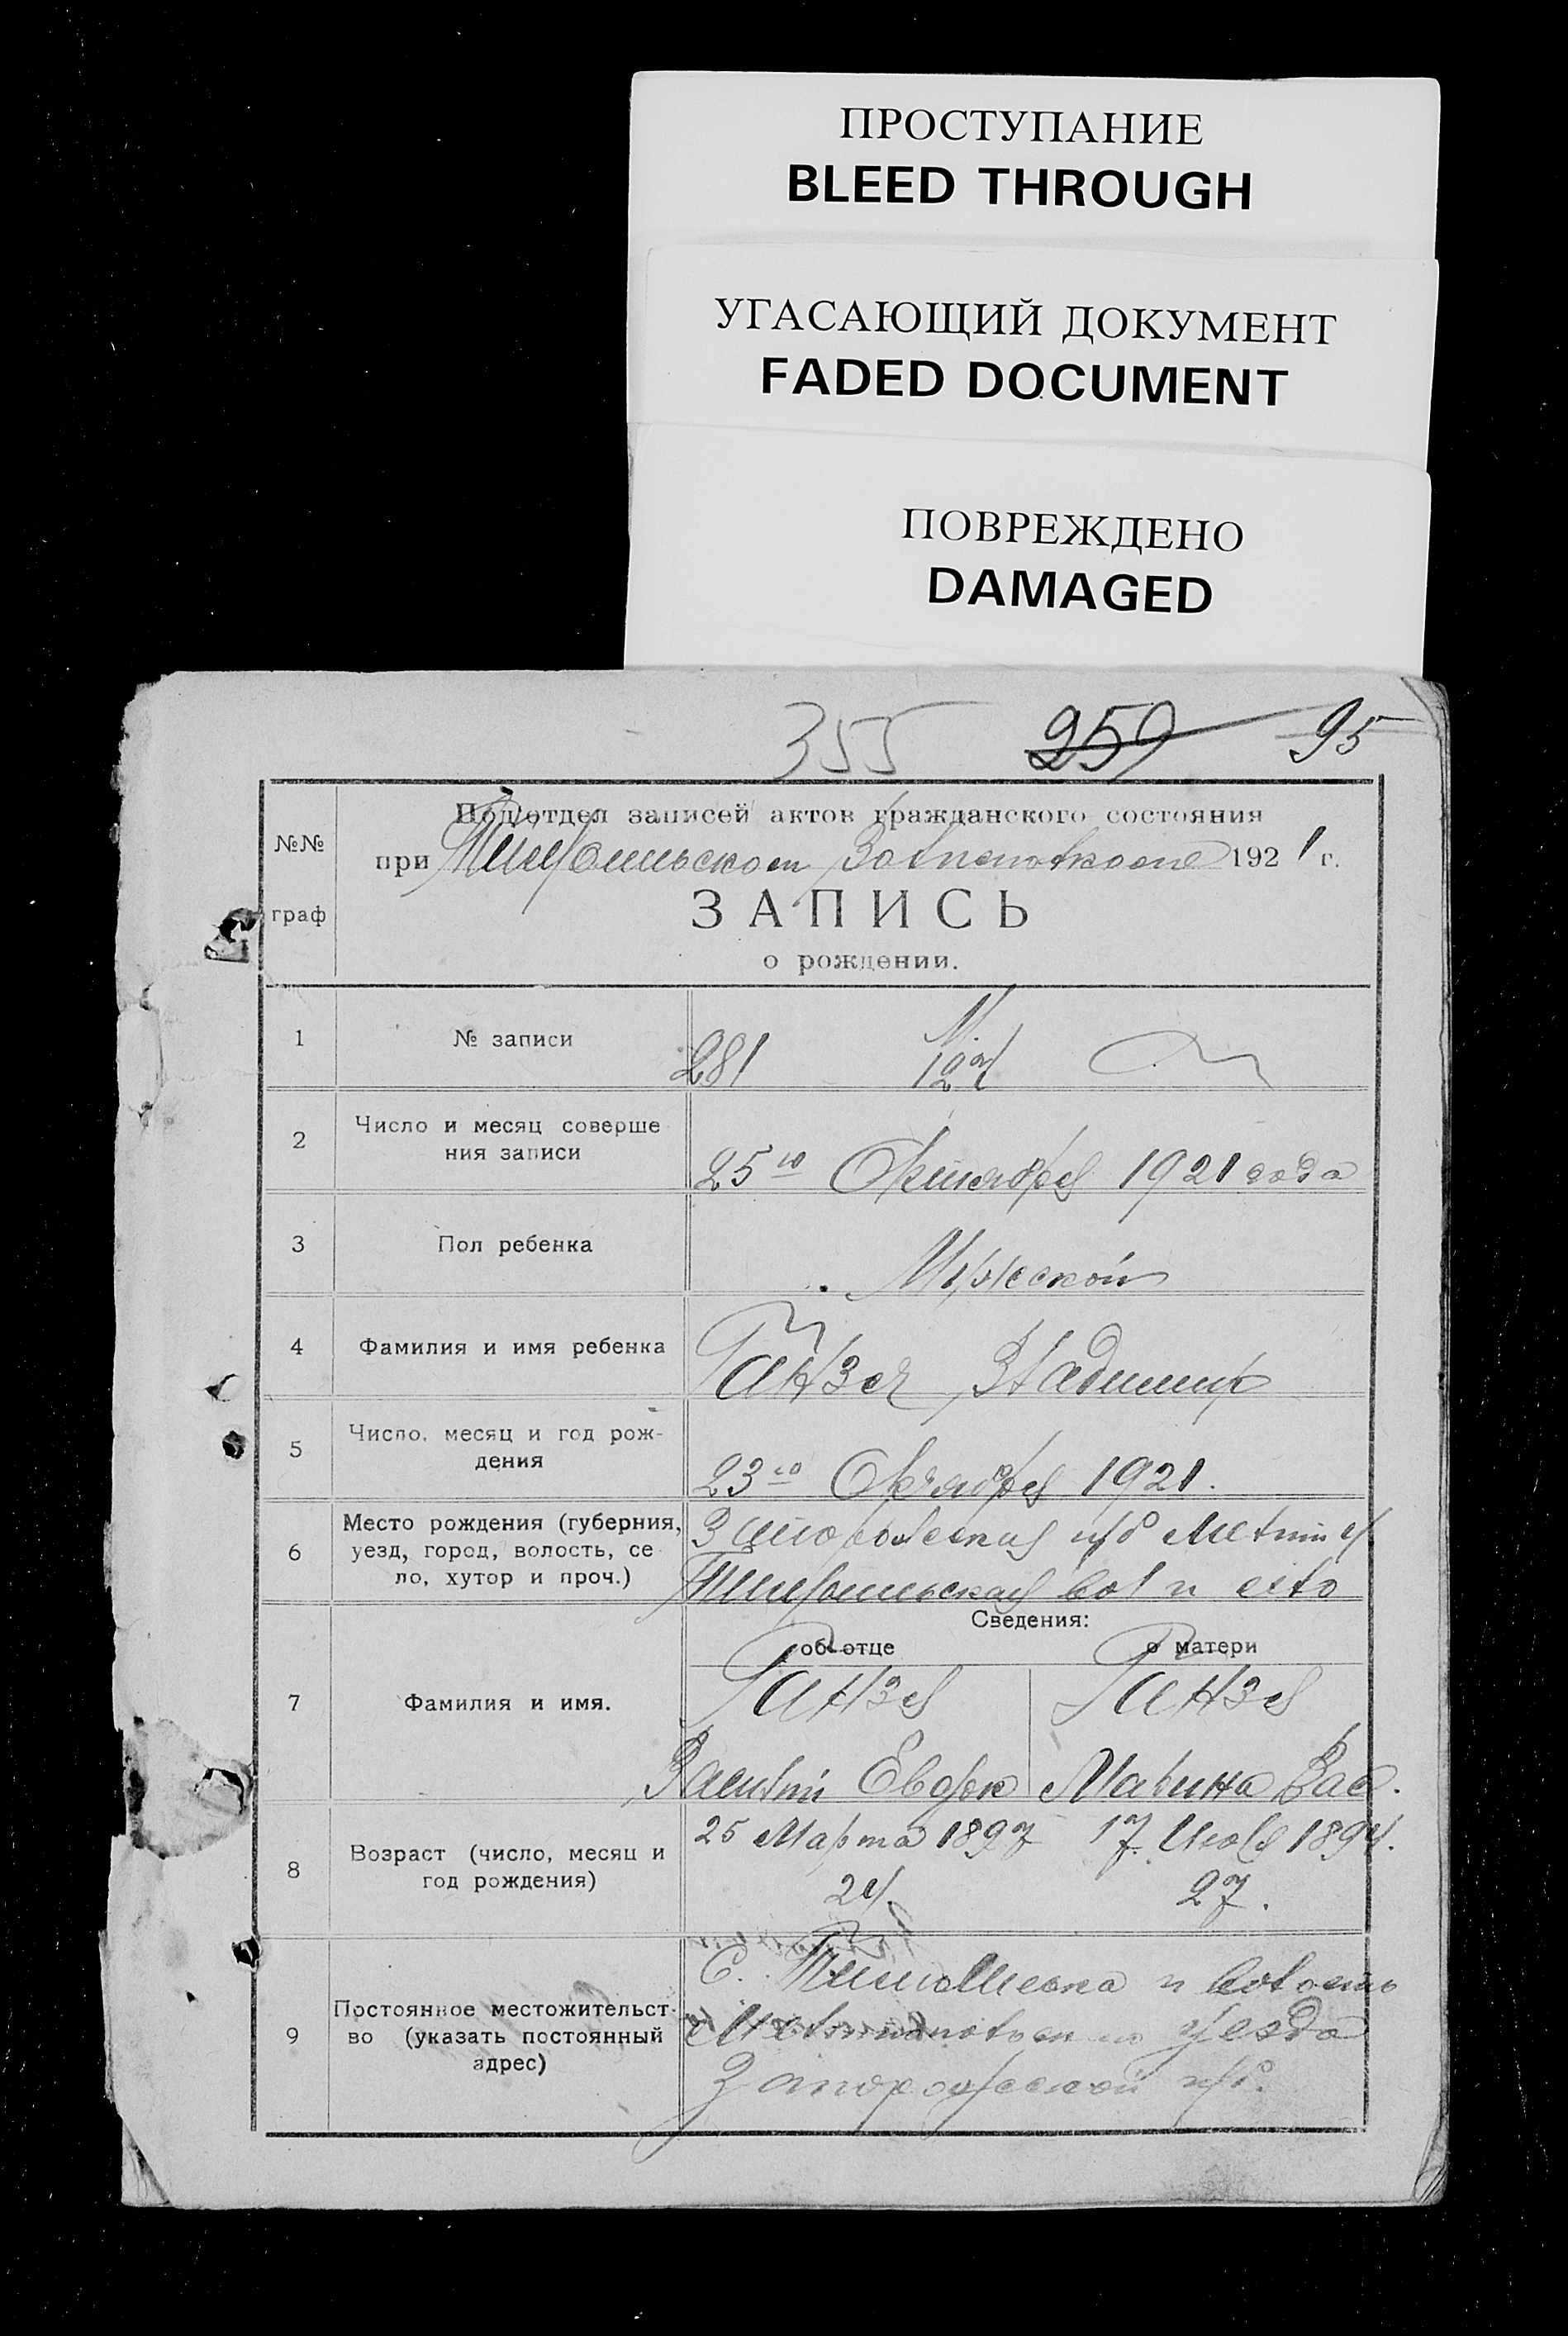 ПРОСТУПАНИЕ
BLEED THROUGH
УГАСАЮЩИЙ ДОКУМЕНТ
FADED DOCUMENT
ПОВРЕЖДЕНО
DAMAGED
355 259 95
№№ граф
Подотдел записей актов гражданского состояния
при 1921 г.
ЗАПИСЬ
о рождении.
1 № записи 281
2 Число и месяц соверше
ния записи 25го Октября 1921 года
3 Пол ребенка Мужской
4 Фамилия и имя ребенка Владимир
5 Число, месяц и год рож-
дения 23го Октября 1921.
6 Место рождения (губерния,
уезд, город, волость, се
ло, хутор и проч.) Запорожская губ Мелит у
вол и село
Сведения:
об отце о матери
7 Фамилия и имя. Ганзя Ганзя
Василий Марина Вас.
8 Возраст (число, месяц и
год рождения) 25 Марта 1897 17 Июля 1894.
24. 27.
9 Постоянное местожительст-
во (указать постоянный
адрес) С. и волость
уезда
Запорожской губ.